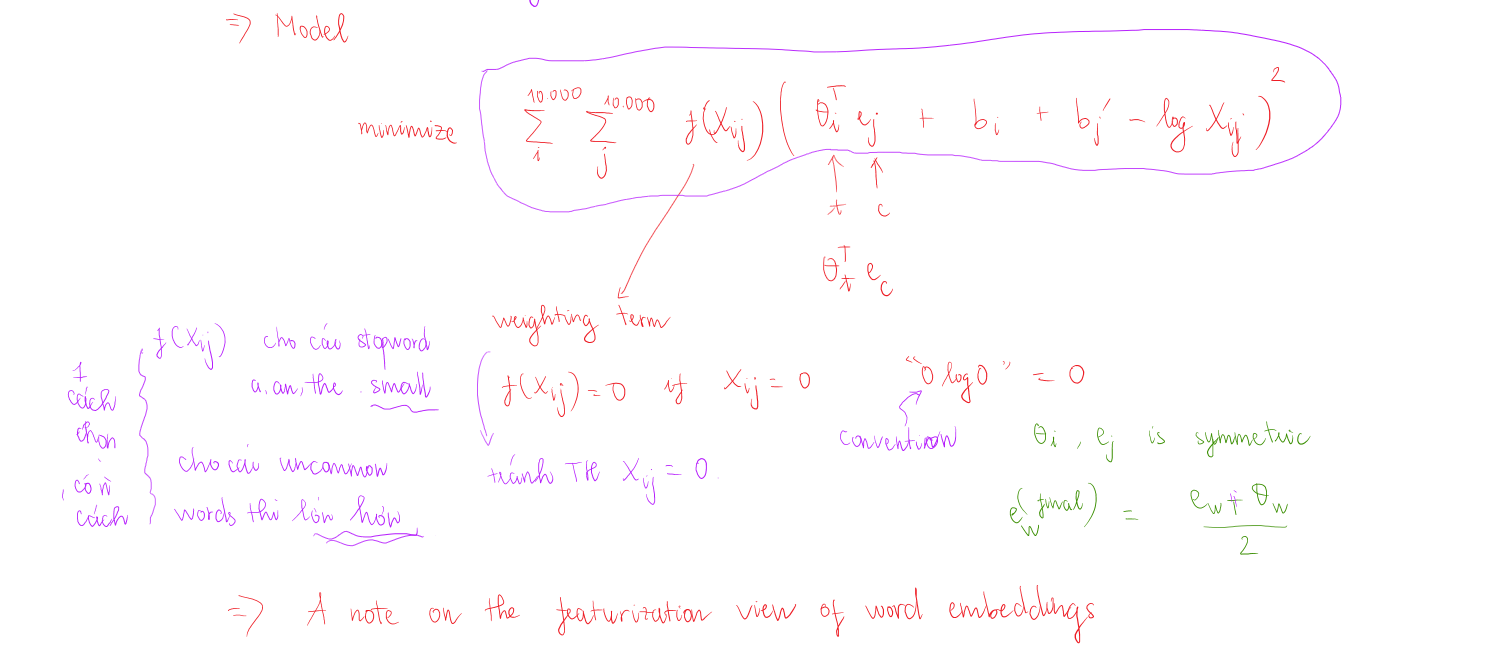 => Model
minimize ∑_i^10.000 ∑_j^10.000 f(X_ij) ( θ_i^T e_j + b_i + b_j' - log X_ij )^2
↑ ↑
t c
θ_t^T e_c
weighting term
f(X_ij) = 0 if X_ij = 0
tránh TH X_ij = 0.
1
cách
chọn
, có n
cách
f(X_ij) cho các stopword
a, an, the . small
cho các uncommon
words thì lớn hơn
"0 log 0" = 0
convention
θ_i , e_j is symmetric
e_w^(final) = (e_w + θ_w) / 2
=> A note on the featurization view of word embeddings